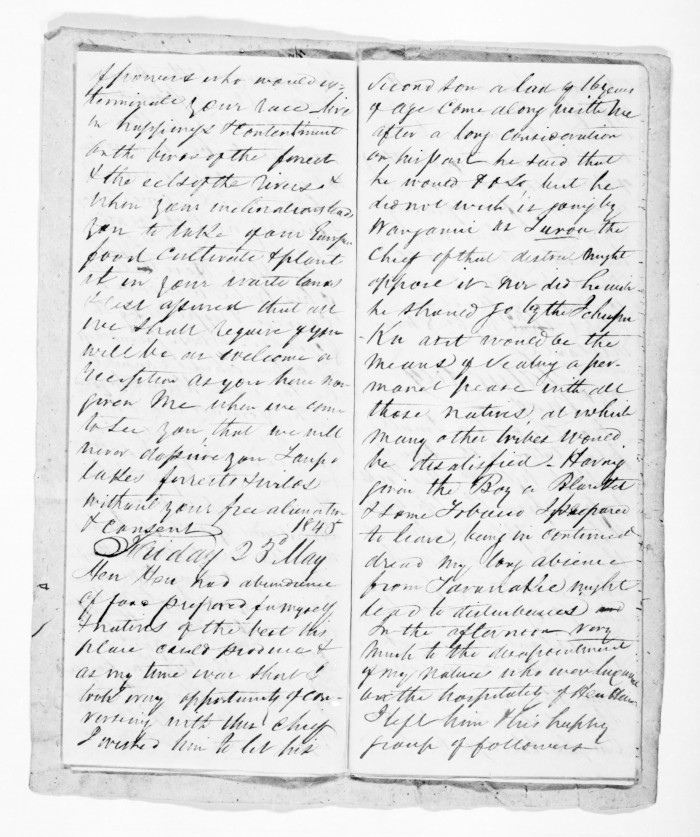 of pioneers who would ex-
terminate your race live
in happiness & contentment
on the birds of the forrest
& the eels of the rivers &
when your inclinations lead
you to take of our
food cultivate & plant
it in your waste lands
& rest assured that all
we shall require of you
will be as welcome a
reception as you have now
given me when we come
to see you, that we will
never deprive you Taupo
lakes forrests & wilds
without your free alienation
& consent 1845
Friday 23d May
Heu Heu had abundance
of food prepared for myself
& natives of the best this
place could produce &
as my time was short I
took every opportunity of con-
versing with this chief
I wished him to let his
second son a lad of 16 years
of age come along with me
after a long consideration
on his part he said that
he would do so but he
did not wish is going by
Wanganui as Turoa the
Chief of that district might
oppose it - nor did he wish
he should go by the
Ku as it would be the
means of sealing a per-
manet peace with all
those natives, at which
many other tribes would
be disatisfied - Having
given the Boy a Blanket
& some Tobacco I prepared
to leave, being in continued
dread my long absence
from Taranakie might
lead to disturbances and
In the afternoon very
much to the disapointment
of my natives who were
on the hospitality of Heu Heu
I left him & his happy
group of followers